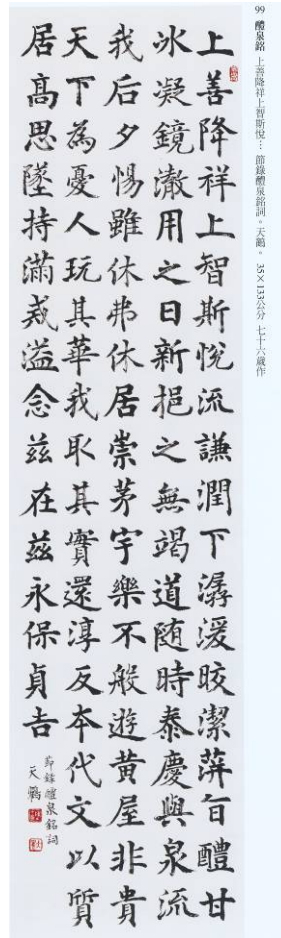 99 醴泉銘 上善降祥上智斯悅⋯ 節錄醴泉銘詞。天鶴。 35×133公分 七十六歲作
上善降祥上智斯悅流謙潤下潺湲晈潔蓱旨醴甘
冰凝鏡澈用之日新挹之無竭道隨時泰慶與泉流
我后夕惕雖休弗休居崇茅宇樂不般遊黃屋非貴
天下為憂人玩其華我取其實還淳反本代文以質
居高思墜持滿戒溢念茲在茲永保貞吉
節錄醴泉銘詞
天鶴